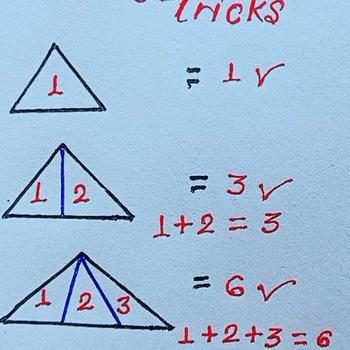 tricks
1
= 1 ✓
1 2
= 3 ✓
1+2 = 3
1 2 3
= 6 ✓
1+2+3=6